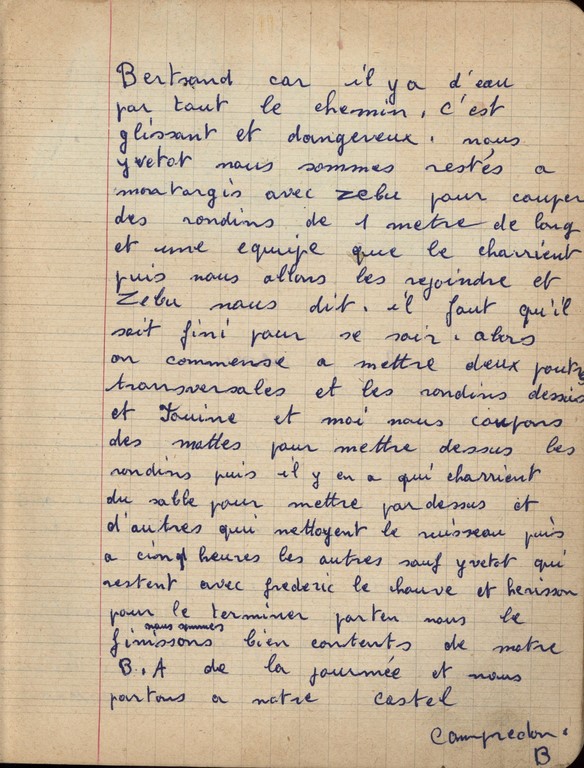 Bertrand car il y a d'eau
par tout le chemin, c'est
glissant et dangereux. nous
yvetot nous sommes restés a
montargis avec zebu pour couper
des rondins de 1 metre de long
et une equipe que le charrient
puis nous allons les rejoindre et
Zebu nous dit. il faut qu'il
soit fini pour se soir. alors
on commense a mettre deux poutres
transversales et les rondins dessus
et Touine et moi nous coupons
des mottes pour mettre dessus les
rondins puis il y en a qui charrient
du sable pour mettre par dessus et
d'autres qui nettoyent le ruisseau puis
a cinq heures les autres sauf yvetot qui
restent avec frederic le chauve et herisson
pour le terminer parten nous le
finissons nous sommes bien contents de notre
B.A de la journée et nous
partons a notre castel
Campredon.
B